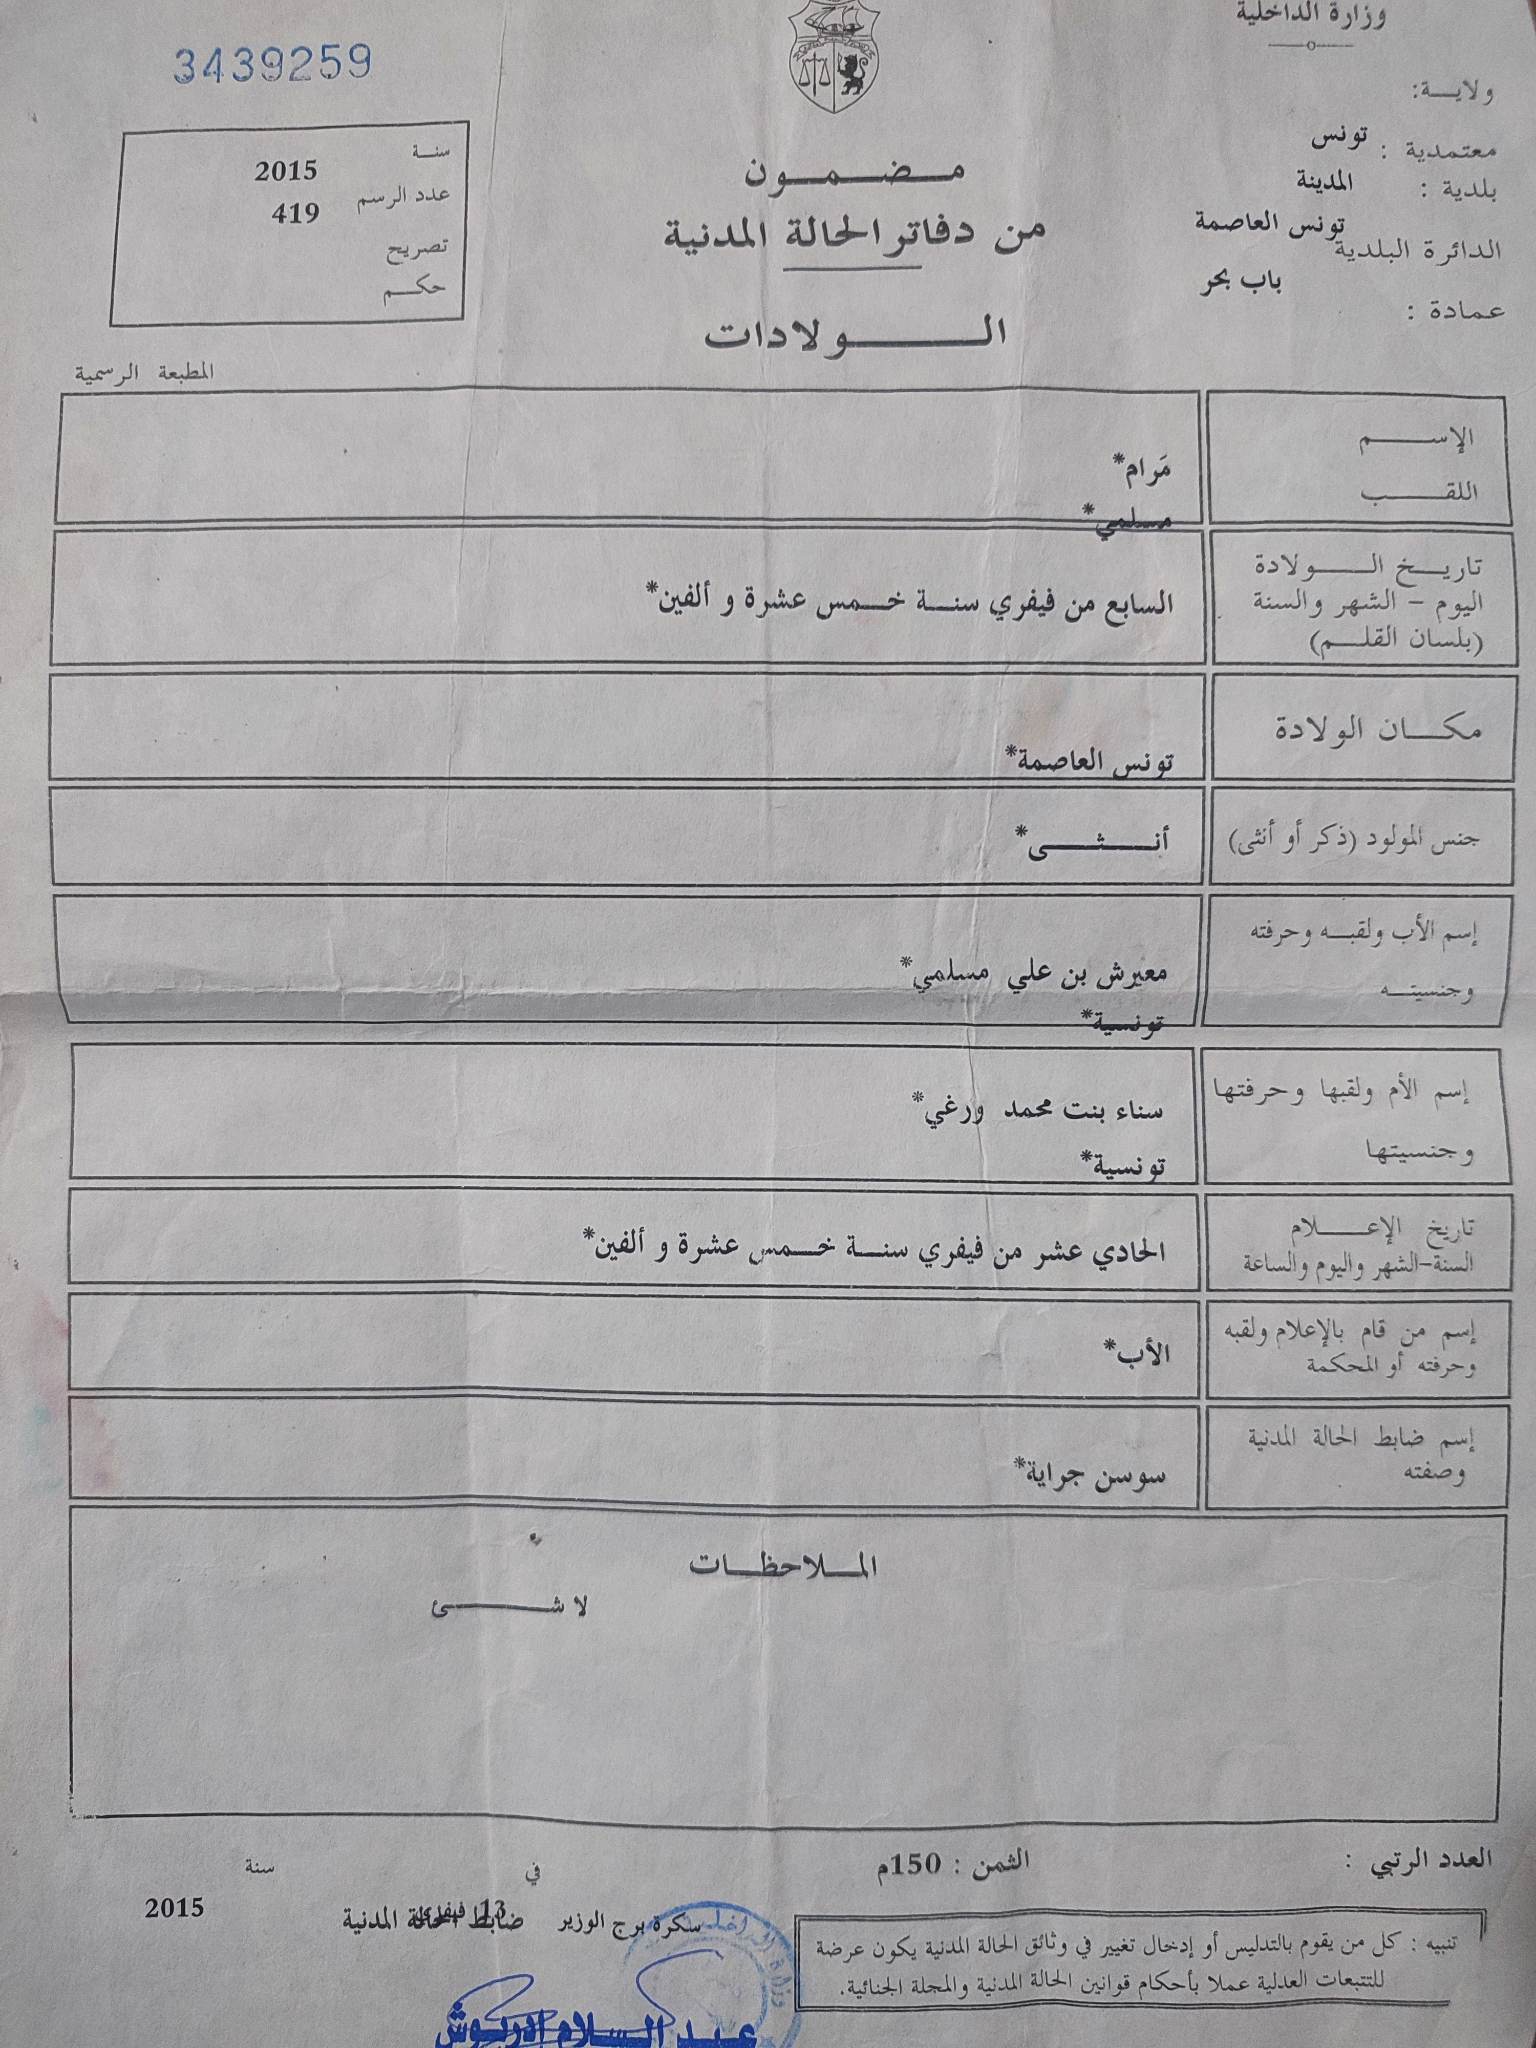 وزارة الداخلية
3439259
ولاية:
تونس
معتمدية :
المدينة
بلدية :
تونس العاصمة
الدائرة البلدية
باب بحر
عمادة :
سنة 2015
عدد الرسم 419
تصريح
حكم
مضمون
من دفاتر الحالة المدنية
الولادات
المطبعة الرسمية
الإسم
مَرام*
اللقب
مسلمي*
تاريخ الولادة
اليوم - الشهر والسنة
(بلسان القلم)
السابع من فيفري سنة خمس عشرة و ألفين*
مكان الولادة
تونس العاصمة*
جنس المولود (ذكر أو أنثى)
أنثى*
إسم الأب ولقبه وحرفته
معيرش بن علي مسلمي*
وجنسيته
تونسية*
إسم الأم ولقبها وحرفتها
سناء بنت محمد ورغي*
وجنسيتها
تونسية*
تاريخ الإعلام
السنة-الشهر واليوم والساعة
الحادي عشر من فيفري سنة خمس عشرة و ألفين*
إسم من قام بالإعلام ولقبه
وحرفته أو المحكمة
الأب*
إسم ضابط الحالة المدنية
وصفته
سوسن جراية*
الملاحظات
لا شئ
العدد الرتبي :
الثمن : 150م
في
سنة
سكرة برج الوزير
13 فيفري
2015
ضابط الحالة المدنية
تنبيه : كل من يقوم بالتدليس أو إدخال تغيير في وثائق الحالة المدنية يكون عرضة
للتتبعات العدلية عملا بأحكام قوانين الحالة المدنية والمجلة الجنائية.
وزارة الداخلية
عبد السلام الدربوش